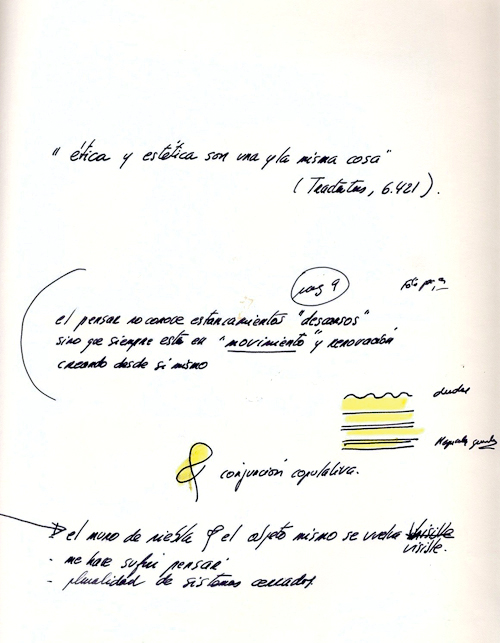 " ética y estética son una y la misma cosa"
(Tractatus, 6.421).
pag 9
el pensar no conoce estancamientos "descansos"
sino que siempre está en "movimiento" y renovación,
creando desde si mismo
dudas
& conjunción copulativa.
el muro de niebla & el objeto mismo se vuelva
visible.
- me hace sufrir pensar
- pluralidad de sistemas cerrados.